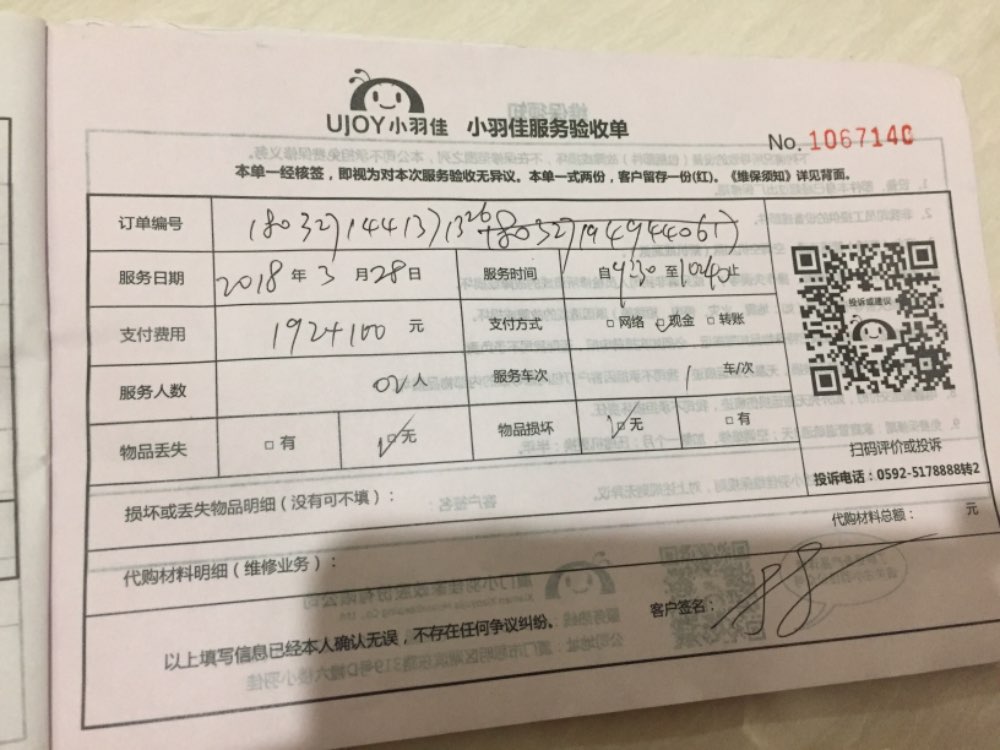 UJOY小羽佳 小羽佳服务验收单
No. 1067140
本单一经核签，即视为对本次服务验收无异议。本单一式两份，客户留存一份(红)。《维保须知》详见背面。
订单编号
服务日期 2018 年 3 月 28 日 服务时间 自 至 止
支付费用 元 支付方式 □网络 □现金 □转账
服务人数 02人 服务车次 1 车/次
物品丢失 □有 □无 物品损坏 □无 □有
投诉或建议
扫码评价或投诉
投诉电话：0592-5178888转2
损坏或丢失物品明细（没有可不填）：
代购材料总额： 元
代购材料明细（维修业务）：
客户签名：
以上填写信息已经本人确认无误，不存在任何争议纠纷。